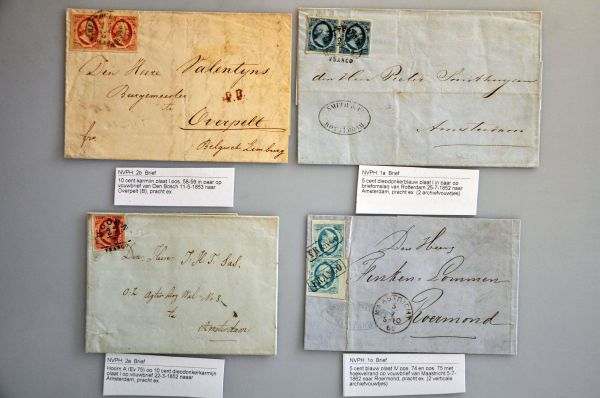 FRANCO
Den Heere Valentyns
Burgemeester
te
P.D.
fro
Overpelt
Belgisch Limburg
NVPH: 2b Brief
10 cent karmijn plaat I pos. 58-59 in paar op
vouwbrief van Den Bosch 11-5-1853 naar
Overpelt (B), pracht ex.
FRANCO
den Heer Pieter
SMITH & C
ROTTERDAM
Amsterdam
NVPH: 1a Brief
5 cent dieodonkerblauw plaat I in paar op
briefomslag van Rotterdam 25-7-1852 naar
Amsterdam, pracht ex. (2 archiefvouwtjes)
HOORN
FRANCO
Den Heere
O.Z. Agterburg Wal No 8
te
Amsterdam
NVPH: 2a Brief
Hoorn A (Ev 75) op 10 cent dieodonkerkarmijn
plaat I op vouwbrief 22-3-1852 naar
Amsterdam, pracht ex.
FRANCO
FRANCO
Den Heer
Roermond
MAASTRICHT
NVPH: 1c Brief
5 cent blauw plaat IV pos. 74 en pos. 75 met
hoekvelrand op vouwbrief van Maastricht 5-7-
1862 naar Roermond, pracht ex. (2 verticale
archiefvouwtjes)